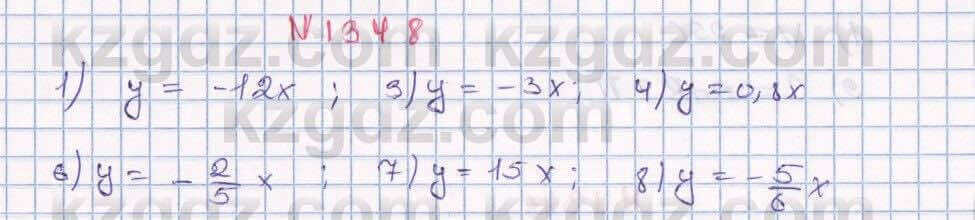 N 1348
kzgdz.com kzgdz.com
1) y = -12x ; 3) y = -3x; 4) y = 0,8x
kzgdz.com
6) y = - 2/5 x ; 7) y = 15x; 8) y = - 5/6 x